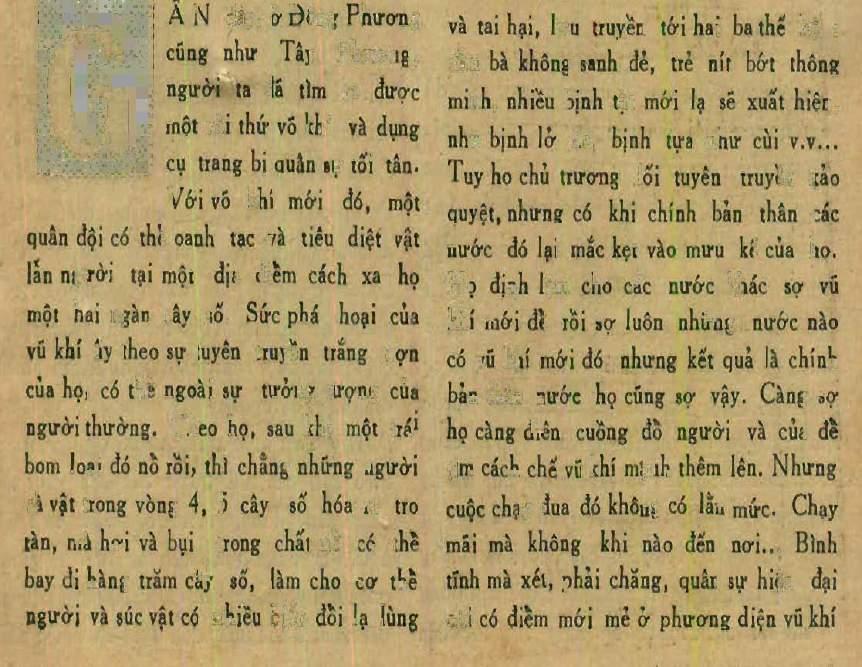 G
Đông Phương
cũng như Tây
người ta đã tìm được
một thứ võ khí và dụng
cụ trang bị quân sự tối tân.
Với võ khí mới đó, một
quân đội có thể oanh tạc và tiêu diệt vật
lẫn người tại một địa điểm cách xa họ
một hai ngàn cây số Sức phá hoại của
vũ khí ấy theo sự tuyên truyền trắng trợn
của họ, có thể ngoài sự tưởng tượng của
người thường. Theo họ, sau khi một trái
bom loại đó nổ rồi, thì chẳng những người
và vật trong vòng 4, 5 cây số hóa ra tro
tàn, mà hơi và bụi trong chất có thể
bay đi hàng trăm cây số, làm cho cơ thể
người và súc vật có nhiều đổi lạ lùng
và tai hại, lưu truyền tới hai ba thế
bà không sanh đẻ, trẻ nít bớt thông
minh nhiều bịnh tật mới lạ sẽ xuất hiện
như bịnh lở bịnh tựa như cùi v.v...
Tuy họ chủ trương lối tuyên truyền xảo
quyệt, nhưng có khi chính bản thân các
nước đó lại mắc kẹt vào mưu kế của họ.
Họ định làm cho các nước khác sợ vũ
khí mới để rồi sợ luôn những nước nào
có vũ khí mới đó nhưng kết quả là chính
bản nước họ cũng sợ vậy. Càng sợ
họ càng điên cuồng đổ người và của để
tìm cách chế vũ khí mạnh thêm lên. Nhưng
cuộc chạy đua đó không có lằn mức. Chạy
mãi mà không khi nào đến nơi.. Bình
tĩnh mà xét, phải chăng, quân sự hiện đại
chỉ có điểm mới mẻ ở phương diện vũ khí